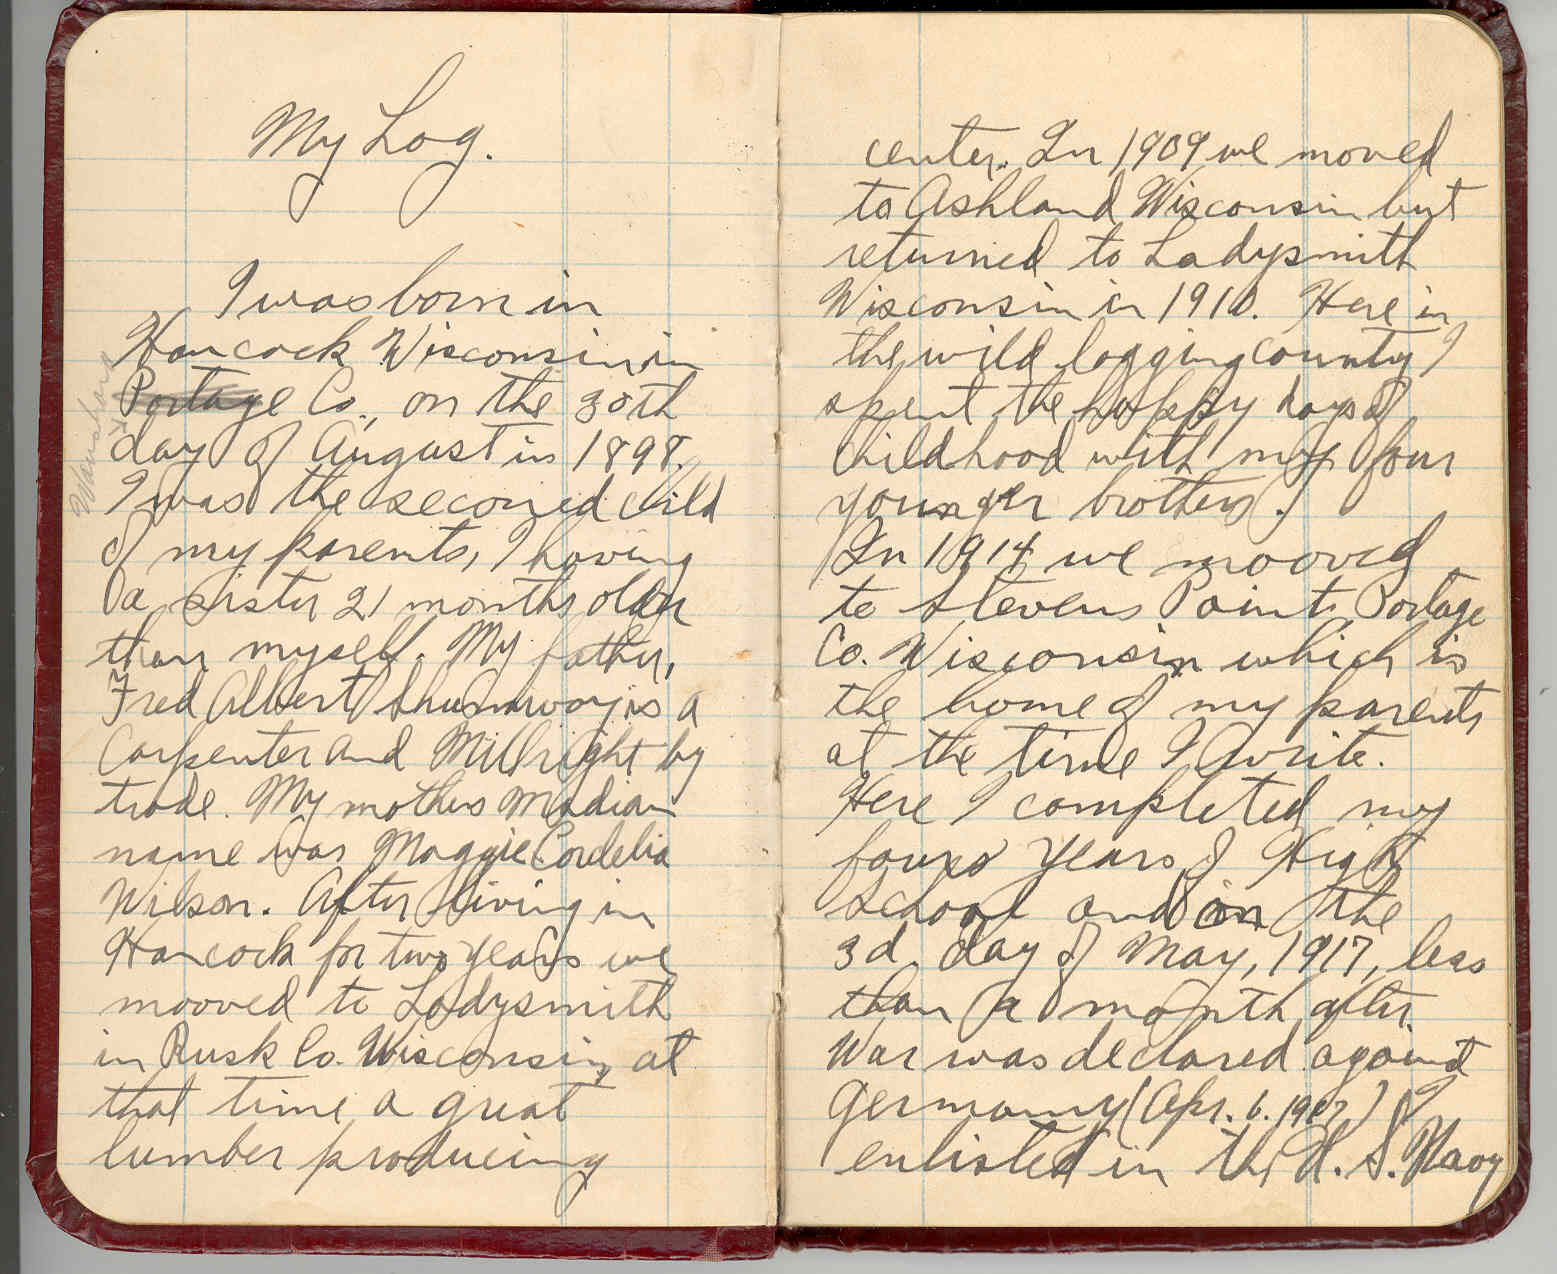 My Log.
I was born in
Hancock Wisconsin, in
Portage Co., on the 30th
day of August in 1898.
I was the seconed child
of my parents, I having
a sister 21 months older
than myself. My father,
Fred Albert Shumway is a
Carpenter and Millright by
trade. My mothers madian
name was Maggie Cordelia
Wilson. After living in
Hancock for two years we
mooved to Ladysmith
in Rusk Co. Wisconsin, at
that time a great
lumber producing
Waushara
center. In 1909 we moved
to Ashland Wisconsin but
returned to Ladysmith
Wisconsin in 1910. Here in
the wild logging country I
spent the happy days of
childhood with my four
younger brothers.
In 1914 we mooved
to Stevens Point, Portage
Co. Wisconsin which is
the home of my parents
at the time I write.
Here I completed my
four years of High
School and on the
3d. day of May, 1917, less
than a month after
War was declared against
Germany (Apr. 6. 1917) I
enlisted in the U. S. Navy